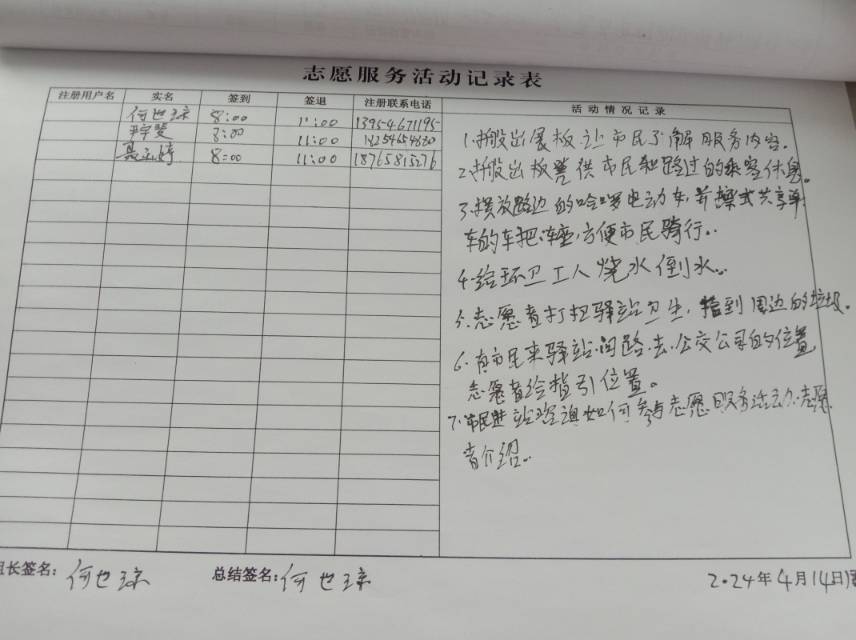 志愿服务活动记录表
注册用户名 实名 签到 签退 注册联系电话 活动情况记录
何世琼 8:00 11:00 13954671195
8:00 11:00
8:00 11:00 18765815276
1.搬出展板让市民了解服务内容。
2.搬出板凳供市民和路过的乘客休息。
3.摆放路边的哈啰电动车,并擦式共享单
车的车把、车座,方便市民骑行。
4.给环卫工人烧水倒水。
5.志愿者打扫驿站卫生,捡到周边的垃圾。
6.有市民来驿站问路去公交公司的位置
志愿者给指引位置。
7.市民进站咨询如何参与志愿服务活动,志愿
者介绍。
组长签名:何世琼 总结签名:何世琼 2024年4月14日